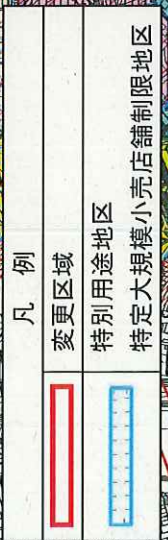 凡例
変更区域
特別用途地区
特定大規模小売店舗制限地区